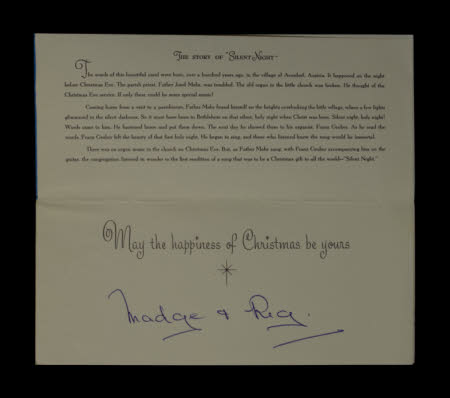 The Story of "Silent Night"
The words of this beautiful carol were born, over a hundred years ago, in the village of Arnsdorf, Austria. It happened on the night
before Christmas Eve. The parish priest, Father Josef Mohr, was troubled. The old organ in the little church was broken. He thought of the
Christmas Eve service. If only there could be some special music!
Coming home from a visit to a parishioner, Father Mohr found himself on the heights overlooking the little village, where a few lights
glimmered in the silent darkness. So it must have been in Bethlehem on that silent, holy night when Christ was born. Silent night, holy night!
Words came to him. He hastened home and put them down. The next day he showed them to his organist, Franz Gruber. As he read the
words, Franz Gruber felt the beauty of that first holy night. He began to sing, and those who listened knew the song would be immortal.
There was no organ music in the church on Christmas Eve. But, as Father Mohr sang, with Franz Gruber accompanying him on the
guitar, the congregation listened in wonder to the first rendition of a song that was to be a Christmas gift to all the world—"Silent Night."
May the happiness of Christmas be yours
Madge & Reg.